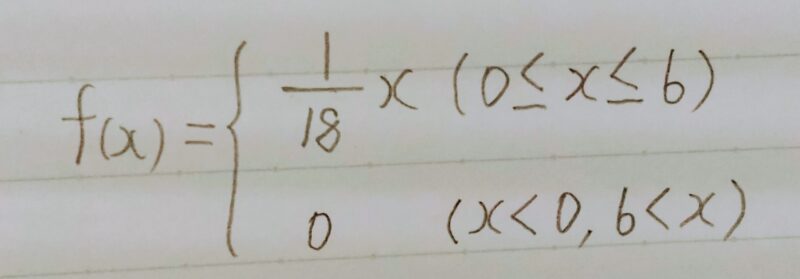 f(x) = { 1/18 x (0 ≤ x ≤ 6)
0 (x < 0, 6 < x)